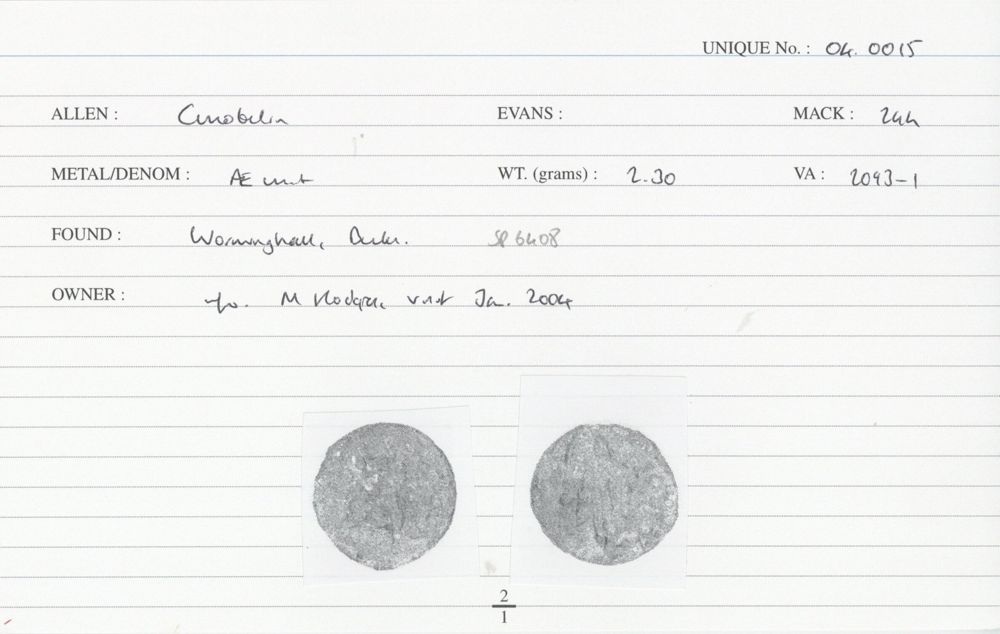 UNIQUE No. : 04. 0015
ALLEN : Cunobelin EVANS : MACK : 244
METAL/DENOM : Æ unit WT. (grams) : 2.30 VA : 2093-1
FOUND : Worminghall, Bucks. SP 6408
OWNER : M visit Jan. 2004
2
1